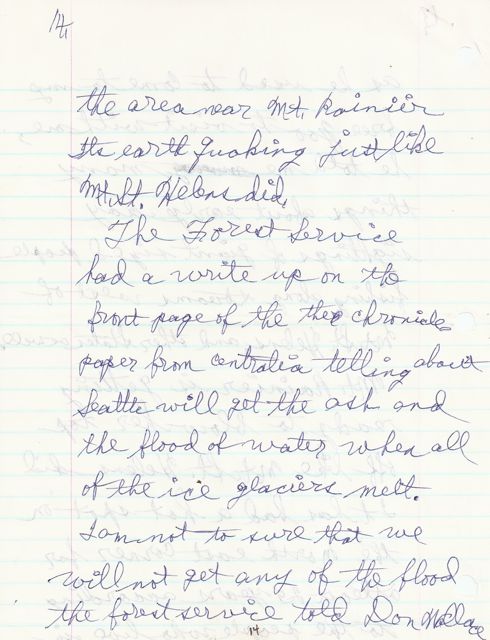 14
the area near Mt. Rainier
Its earth Quaking just like
Mt. St. Helens did.
The Forest Service
had a write up on the
front page of the the chronicle
paper from centralia telling about
Seattle will get the ash and
the flood of water when all
of the ice glaciers melt.
I am not to sure that we
will not get any of the flood
the forest service told Don
14